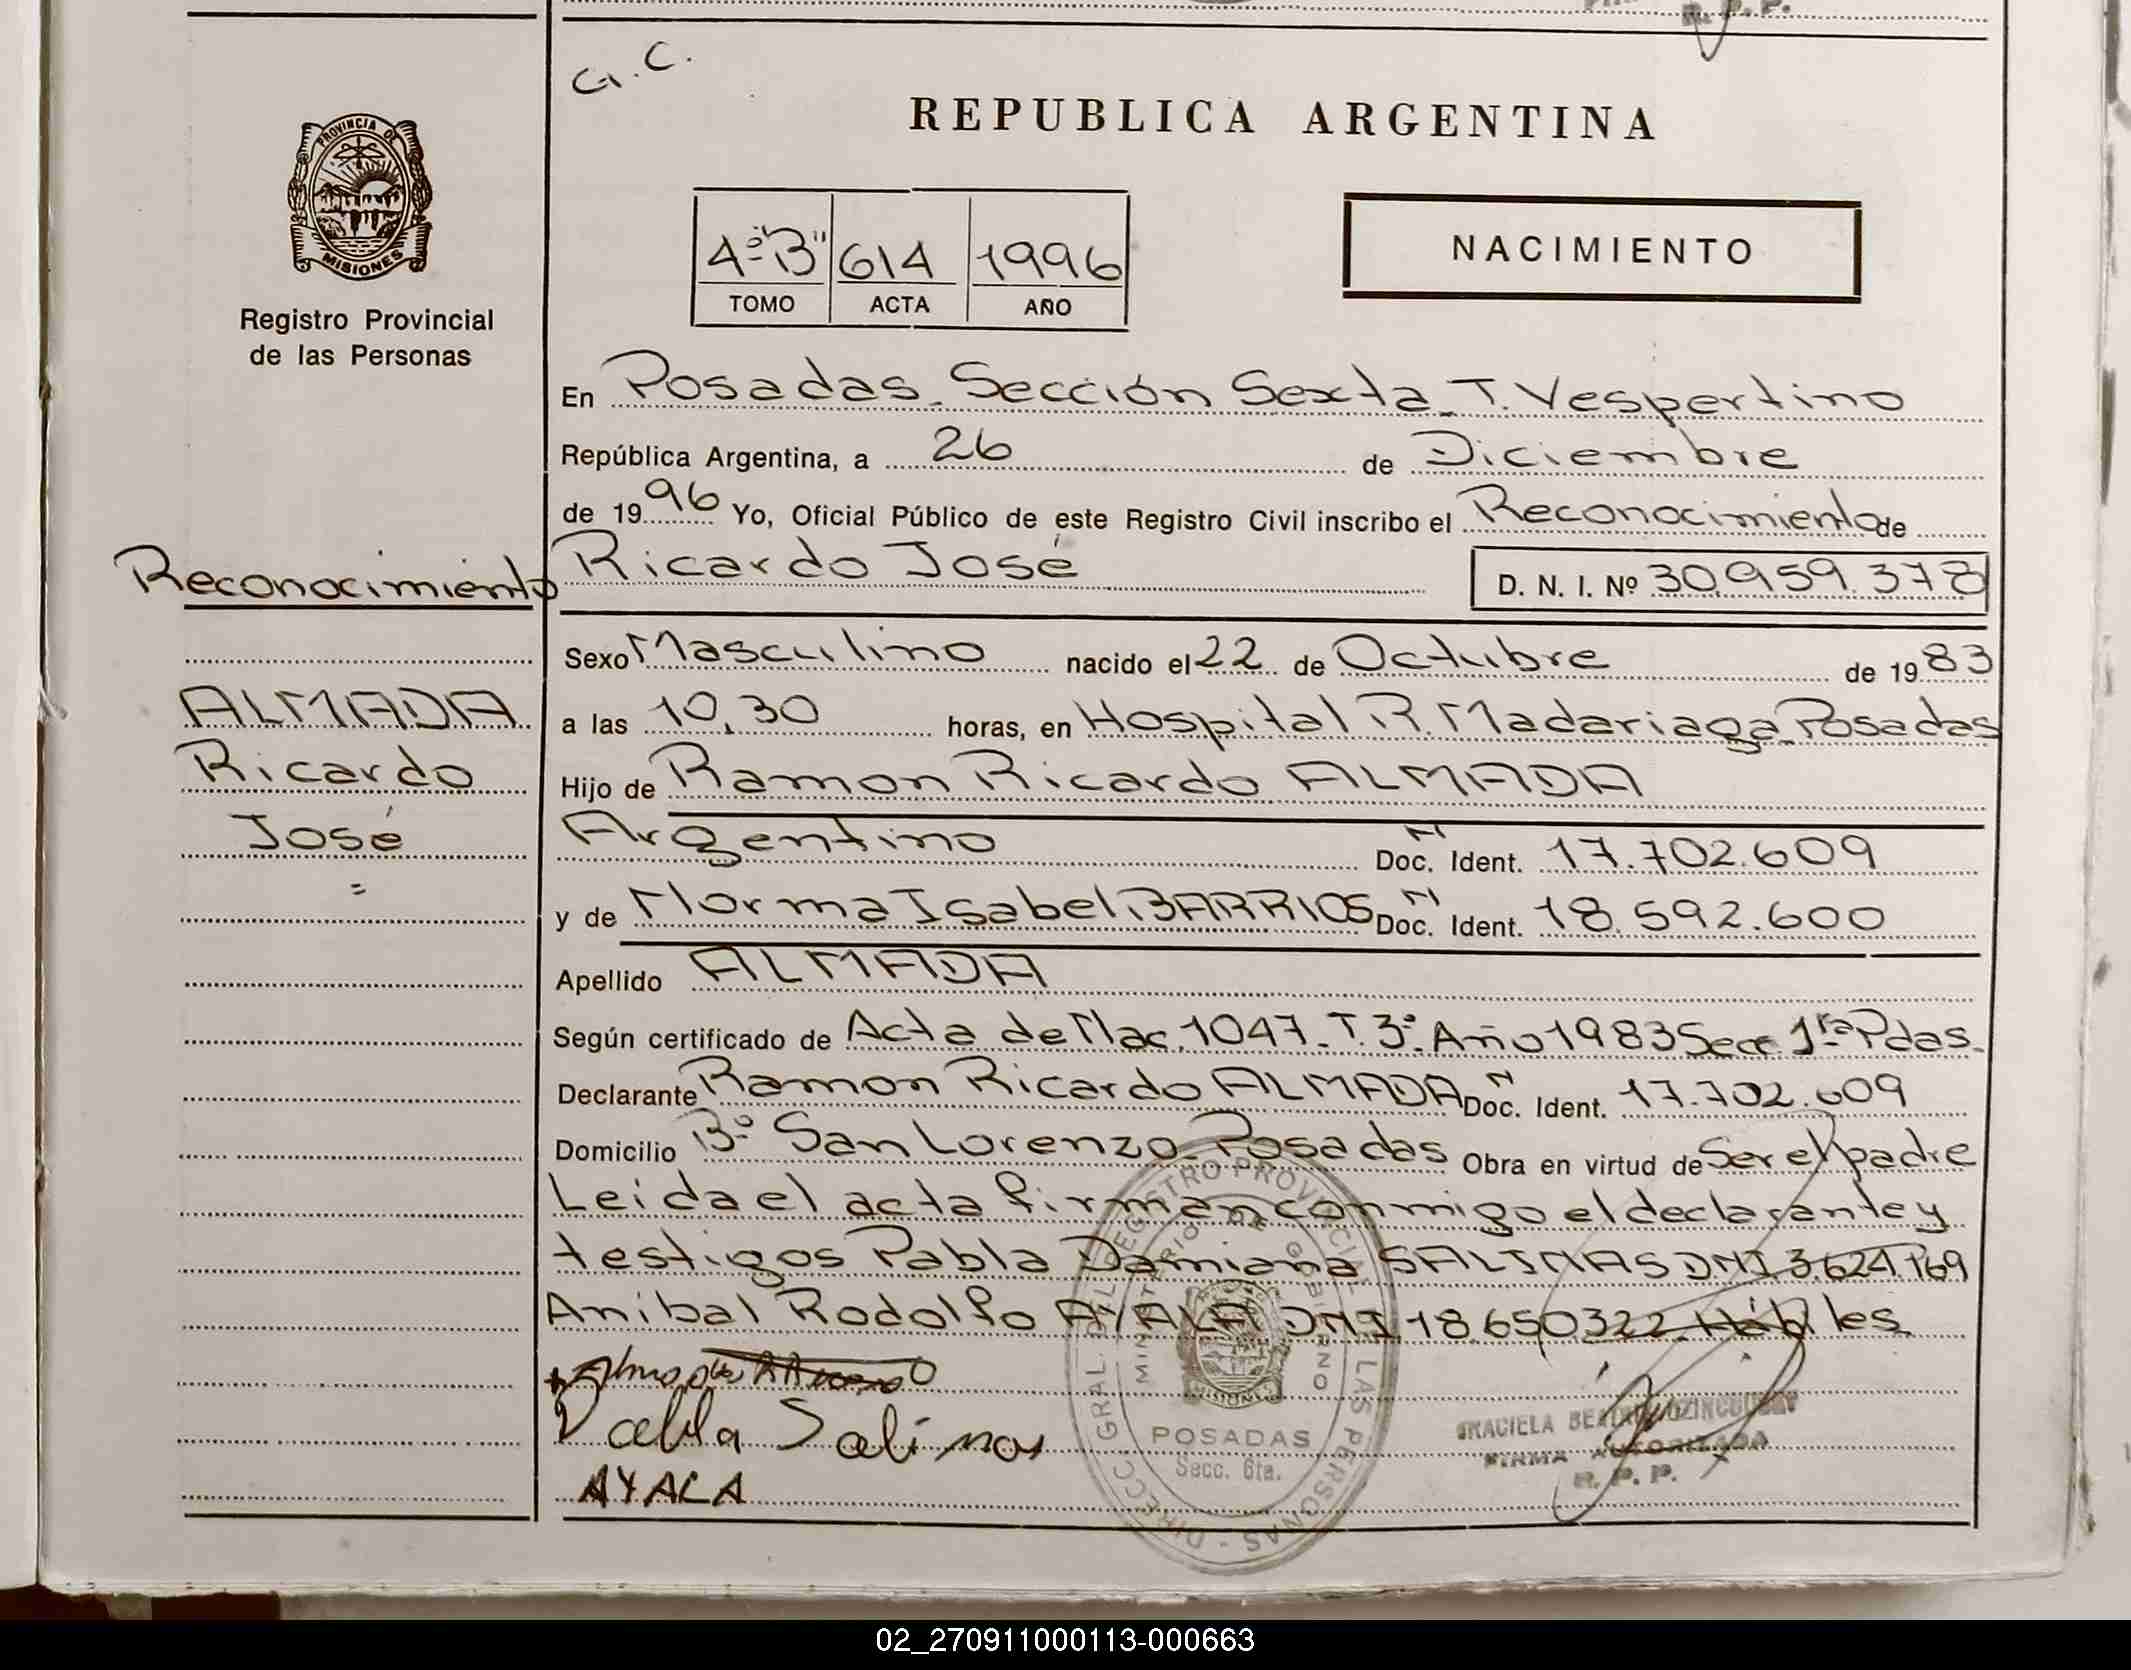 R. P. P.
G. C.
REPUBLICA ARGENTINA
PROVINCIA DE
MISIONES
Registro Provincial
de las Personas
4º "B" 614 1996
TOMO ACTA AÑO
NACIMIENTO
En Posadas. Sección Sexta. T. Vespertino
República Argentina, a 26 de Diciembre
de 1996 Yo, Oficial Público de este Registro Civil inscribo el Reconocimiento de
Reconocimiento
Ricardo José D. N. I. Nº 30.959.378
Sexo Masculino nacido el 22 de Octubre de 1983
ALMADA
Ricardo
José
=
a las 10,30 horas, en Hospital R. Madariaga Posadas
Hijo de Ramon Ricardo ALMADA
Argentino Doc. Ident. 17.702.609
y de Norma Isabel BARRIOS Doc. Ident. 18.592.600
Apellido ALMADA
Según certificado de Acta de Nac. 1047. T. 3º. Año 1983 Secc. 1ra Pdas.
Declarante Ramon Ricardo ALMADA Doc. Ident. 17.702.609
Domicilio Bº San Lorenzo. Posadas Obra en virtud de Ser el padre
Leida el acta firman conmigo el declarante y
testigos Pabla Damiana SALINAS DNI 3.624.169
Anibal Rodolfo AYALA DNI 18.650322. Hábiles.
Pabla Salinas
AYALA
DIRECC. GRAL. DEL REGISTRO PROVINCIAL DE LAS PERSONAS
MINISTERIO DE GOBIERNO
MISIONES
POSADAS
Secc. 6ta.
GRACIELA
FIRMA AUTORIZADA
R. P. P.
02_270911000113-000663